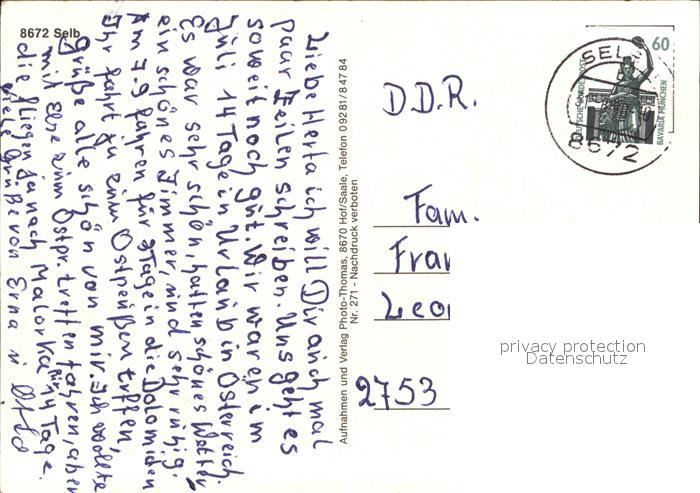 8672 Selb
Liebe Herta ich will Dir auch mal
paar Zeilen schreiben. Uns geht es
soweit noch gut. Wir waren im
Juli 14 Tage in Urlaub in Österreich.
Es war sehr schön, hatten schönes Wetter
ein schönes Zimmer, sind sehr ruhig.
Am 7.9 fahren für 3 Tage in die Dolomiden
Ihr fahrt zu einem Ostpreußen treffen,
grüße alle schön von mir. Ich wollte
mit Elze zum Ostpr. treffen fahren, aber
die fliegen ja nach Malorka für 14 Tage.
viele Grüße von Erna u Otto
Aufnahmen und Verlag Photo-Thomas, 8670 Hof/Saale, Telefon 09281/84784
Nr. 271 - Nachdruck verboten
60
DEUTSCHE BUNDESPOST
BAVARIA MÜNCHEN
SEL
8672
D.D.R.
Fam.
Leo
2753
privacy protection
Datenschutz